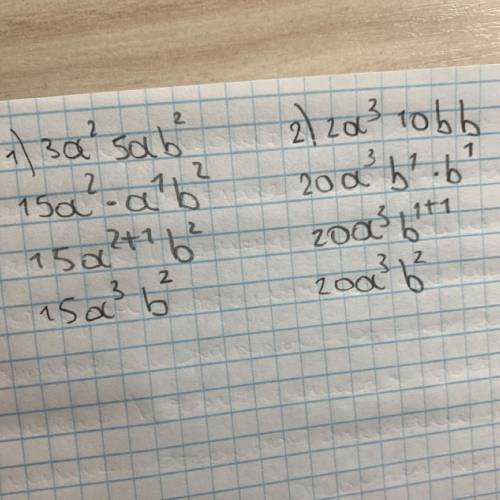 1) 3a² 5ab²
15a² · a¹b²
15a²⁺¹ b²
15a³ b²
2) 2a³ 10bb
20a³ b¹ · b¹
20a³b¹⁺¹
20a³b²